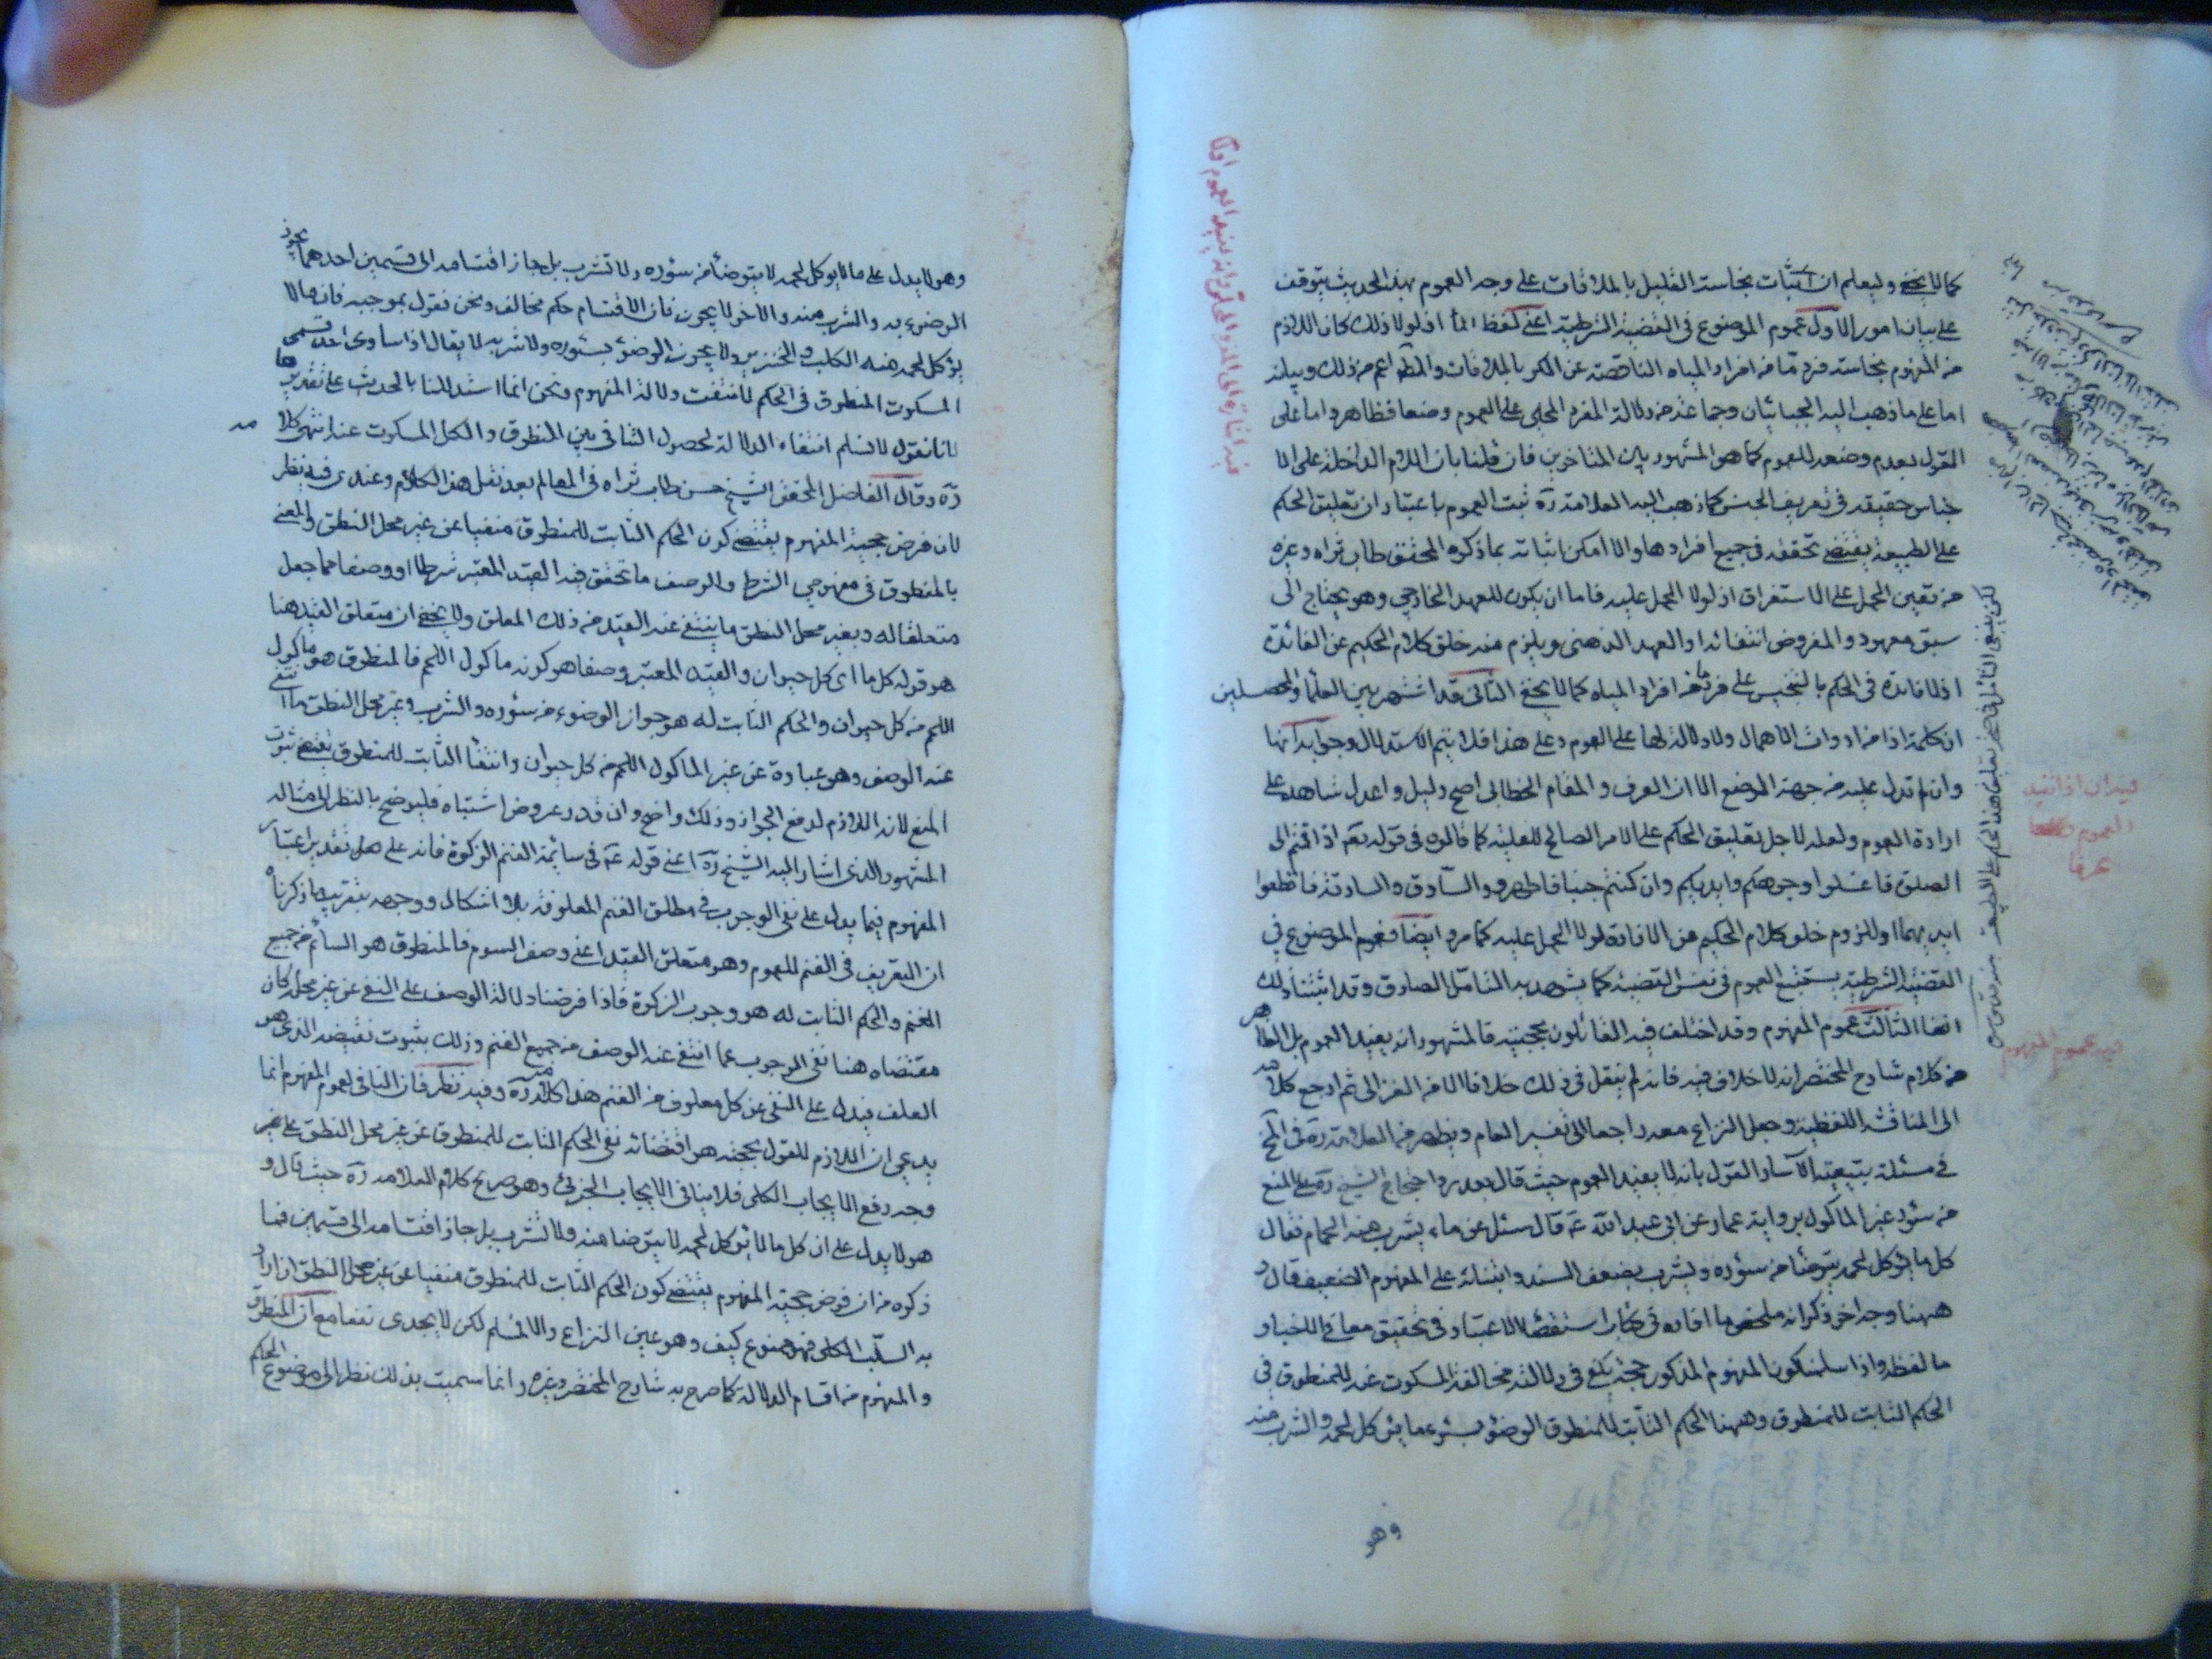 كما لا يخفى وليعلم ان اثبات نجاسة القليل بالملاقات على وجه العموم بهذا الحديث يتوقف
على بيان امور الاول عموم الموضوع في القضية الشرطية اعني لفظ الماء اذ لولا ذلك كان اللازم
من المفهوم نجاسة فرد ما من افراد المياه الناقصة عن الكر بالملاقات والمط اعم من ذلك وبيانه
اما على ما ذهب اليه الجبائيان وجماعة من دلالة المفرد المحلى على العموم وضعا فظاهر واما على
القول بعدم وضعه للعموم كما هو المشهور بين المتاخرين فان قلنا بان اللام الداخلة على الا
جناس حقيقة في تعريف الجنس كما ذهب اليه العلامة ره ثبت العموم باعتبار ان تعليق الحكم
على الطبيعة يقتضي تحققه في جميع افرادها والا امكن اثباته بما ذكره المحقق طاب ثراه وغيره
من تعين الحمل على الاستغراق اذ لولا الحمل عليه فاما ان يكون للعهد الخارجي وهو يحتاج الى
سبق معهود والمفروض انتفائه او العهد الذهني ويلزم منه خلو كلام الحكيم عن الفائدة
اذ لا فائدة في الحكم بالتنجيس على فرد ما من افراد المياه كما لا يخفى الثاني قد اشتهر بين العلماء والمحصلين
ان كلمة اذا من ادوات الاهمال ولا دلالة لها على العموم وعلى هذا فلا يتم الاستدلال وجوابه انها
وان لم تدل عليه من جهة الوضع الا ان العرف والمقام الخطابي اصح دليل واعدل شاهد على
ارادة العموم ولعله لاجل تعليق الحكم على الامر الصالح للعلية كما قالوه في قوله تعم اذا قمتم الى
الصلوة فاغسلوا وجوهكم وايديكم وان كنتم جنبا فاطهروا والسارق والسارقة فاقطعوا
ايديهما او للزوم خلو كلام الحكيم عن الافادة لولا الحمل عليه كما مر وايضا فعموم الموضوع في
القضية الشرطية يستتبع العموم في نفس القضية كما يشهد به التامل الصادق وقد اثبتنا ذلك
انفا الثالث عموم المفهوم وقد اختلف فيه القائلون بحجيته فالمشهور انه يفيد العموم بل الظاهر
من كلام شارح المختصر انه لا خلاف فيه فانه لم ينقل في ذلك خلافا الا من الغزالي ثم ارجع كلامه
الى المناقشة اللفظية وجعل النزاع معه راجعا الى تفسير العام ويظهر من العلامة ره في لخ
في مسئلة تبعية الآسار القول بانه لا يفيد العموم حيث قال بعد رد احتجاج الشيخ ره على المنع
من سؤر غير الماكول برواية عمار عن ابي عبد الله ع قال سئل عن ماء يشرب منه الحمام فقال
كل ما يؤكل لحمه يتوضأ من سؤره ويشرب بضعف السند وابتنائه على المفهوم الضعيف قال و
ههنا وجه اخر ذكر انه ملخص ما افاده في كتاب استقصاء الاعتبار في تحقيق معاني الاخبار
ما لفظه واذا سلمنا كون المفهوم المذكور حجة يكفي في دلالته مخالفة المسكوت عنه للمنطوق في
الحكم الثابت للمنطوق وههنا الحكم الثابت للمنطوق الوضوء بسؤر ما يؤكل لحمه والشرب منه
وهو
فيه ان اذا تفيد
العموم
عرفا
فيه عموم المفهوم
وهو لا يدل على ما لا يوكل لحمه لا يتوضأ من سؤره ولا تشرب بل جاز اقتسامه الى قسمين احدهما يجوز
الوضوء به والشرب منه والاخر لا يجوز فان الاقتسام حكم مخالف ونحن نقول بموجبه فان ما لا
يؤكل لحمه منه الكلب والخنزير ولا يجوز الوضوء بسؤره ولا شربه لا يقال اذا ساوى احد قسمي
المسكوت المنطوق في الحكم لانتفت دلالة المفهوم ونحن انما استدللنا بالحديث على تقديرها
لانا نقول لا نسلم انتفاء الدلالة لحصول التنافي بين المنطوق والكل المسكوت عنه انتهى كلامه
ره وقال الفاضل المحقق الشيخ حسن طاب ثراه في المعالم بعد نقل هذا الكلام وعندي فيه نظر
لان فرض حجية المفهوم يقتضي كون الحكم الثابت للمنطوق منفيا عن غير محل النطق والمعني
بالمنطوق في مفهومي الشرط والوصف ما تحقق فيه القيد المعتبر شرطا او وصفا مما جعل
متعلقا له وبغير محل النطق ما ينتفي عنه القيد من ذلك المعلق ولا يخفى ان متعلق القيد هنا
هو قوله كل ما اي كل حيوان والقيد المعتبر وصفا هو كونه ماكول اللحم فالمنطوق هو ماكول
اللحم من كل حيوان والحكم الثابت له هو جواز الوضوء من سؤره والشرب وغير محل النطق ما انتفى
عنه الوصف وهو عبارة عن غير الماكول اللحم من كل حيوان وانتفاء الثابت للمنطوق يقتضي ثبوت
المنع لانه اللازم لدفع الجواز وذلك واضح وان قدر عروض اشتباه فليوضح بالنظر الى مثاله
المشهور الذي اشار اليه الشيخ ره اعني قوله ع في سائمة الغنم الزكوة فانه على تقدير اعتبار
المفهوم فيها يدل على نفي الوجوب في مطلق الغنم المعلوفة بلا اشكال ووجهه بتقريب ما ذكرناه
ان التعريف في الغنم للعموم وهو متعلق القيد اعني وصف السوم فالمنطوق هو السائم من جميع
الغنم والحكم الثابت له هو وجوب الزكوة فاذا فرضنا دلالة الوصف على النفي عن غير محله كان
مقتضاه هنا نفي الوجوب عما انتفى عنه الوصف من جميع الغنم وذلك بثبوت نقيضه الذي هو
العلف فيدل على النفي عن كل معلوف من الغنم هذا كلامه ره وفيه نظر فان النافي لعموم المفهوم انما
يدعي ان اللازم للقول بحجيته هو اقتضائه نفي الحكم الثابت للمنطوق عن غير محل النطق على غير
وجه رفع الايجاب الكلي فلا ينافي الايجاب الجزئي وهو صريح كلام العلامه ره حيث قال و
هو لا يدل على ان كل ما لا يؤكل لحمه لا يتوضا منه ولا تشرب بل جاز اقتسامه الى قسمين فما
ذكره من ان فرض حجية المفهوم يقتضي كون الحكم الثابت للمنطوق منفيا عن غير محل النطق ان اراد
به السلب الكلي فهو ممنوع كيف وهو عين النزاع والا فمسلم لكن لا يجدي نفعا مع ان المنطوق
والمفهوم من اقسام الدلالة كما صرح به شارح المختصر وغيره وانما سميت بذلك نظرا الى موضوع الحكم